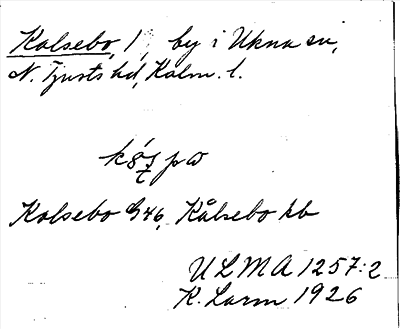 Kolsebo, 1, by i Ukna sn,
N. Tjusts hd, Kalm. l.
Kolsebo G46, Kålsebo kb
ULMA 1257:2
K. Larm 1926